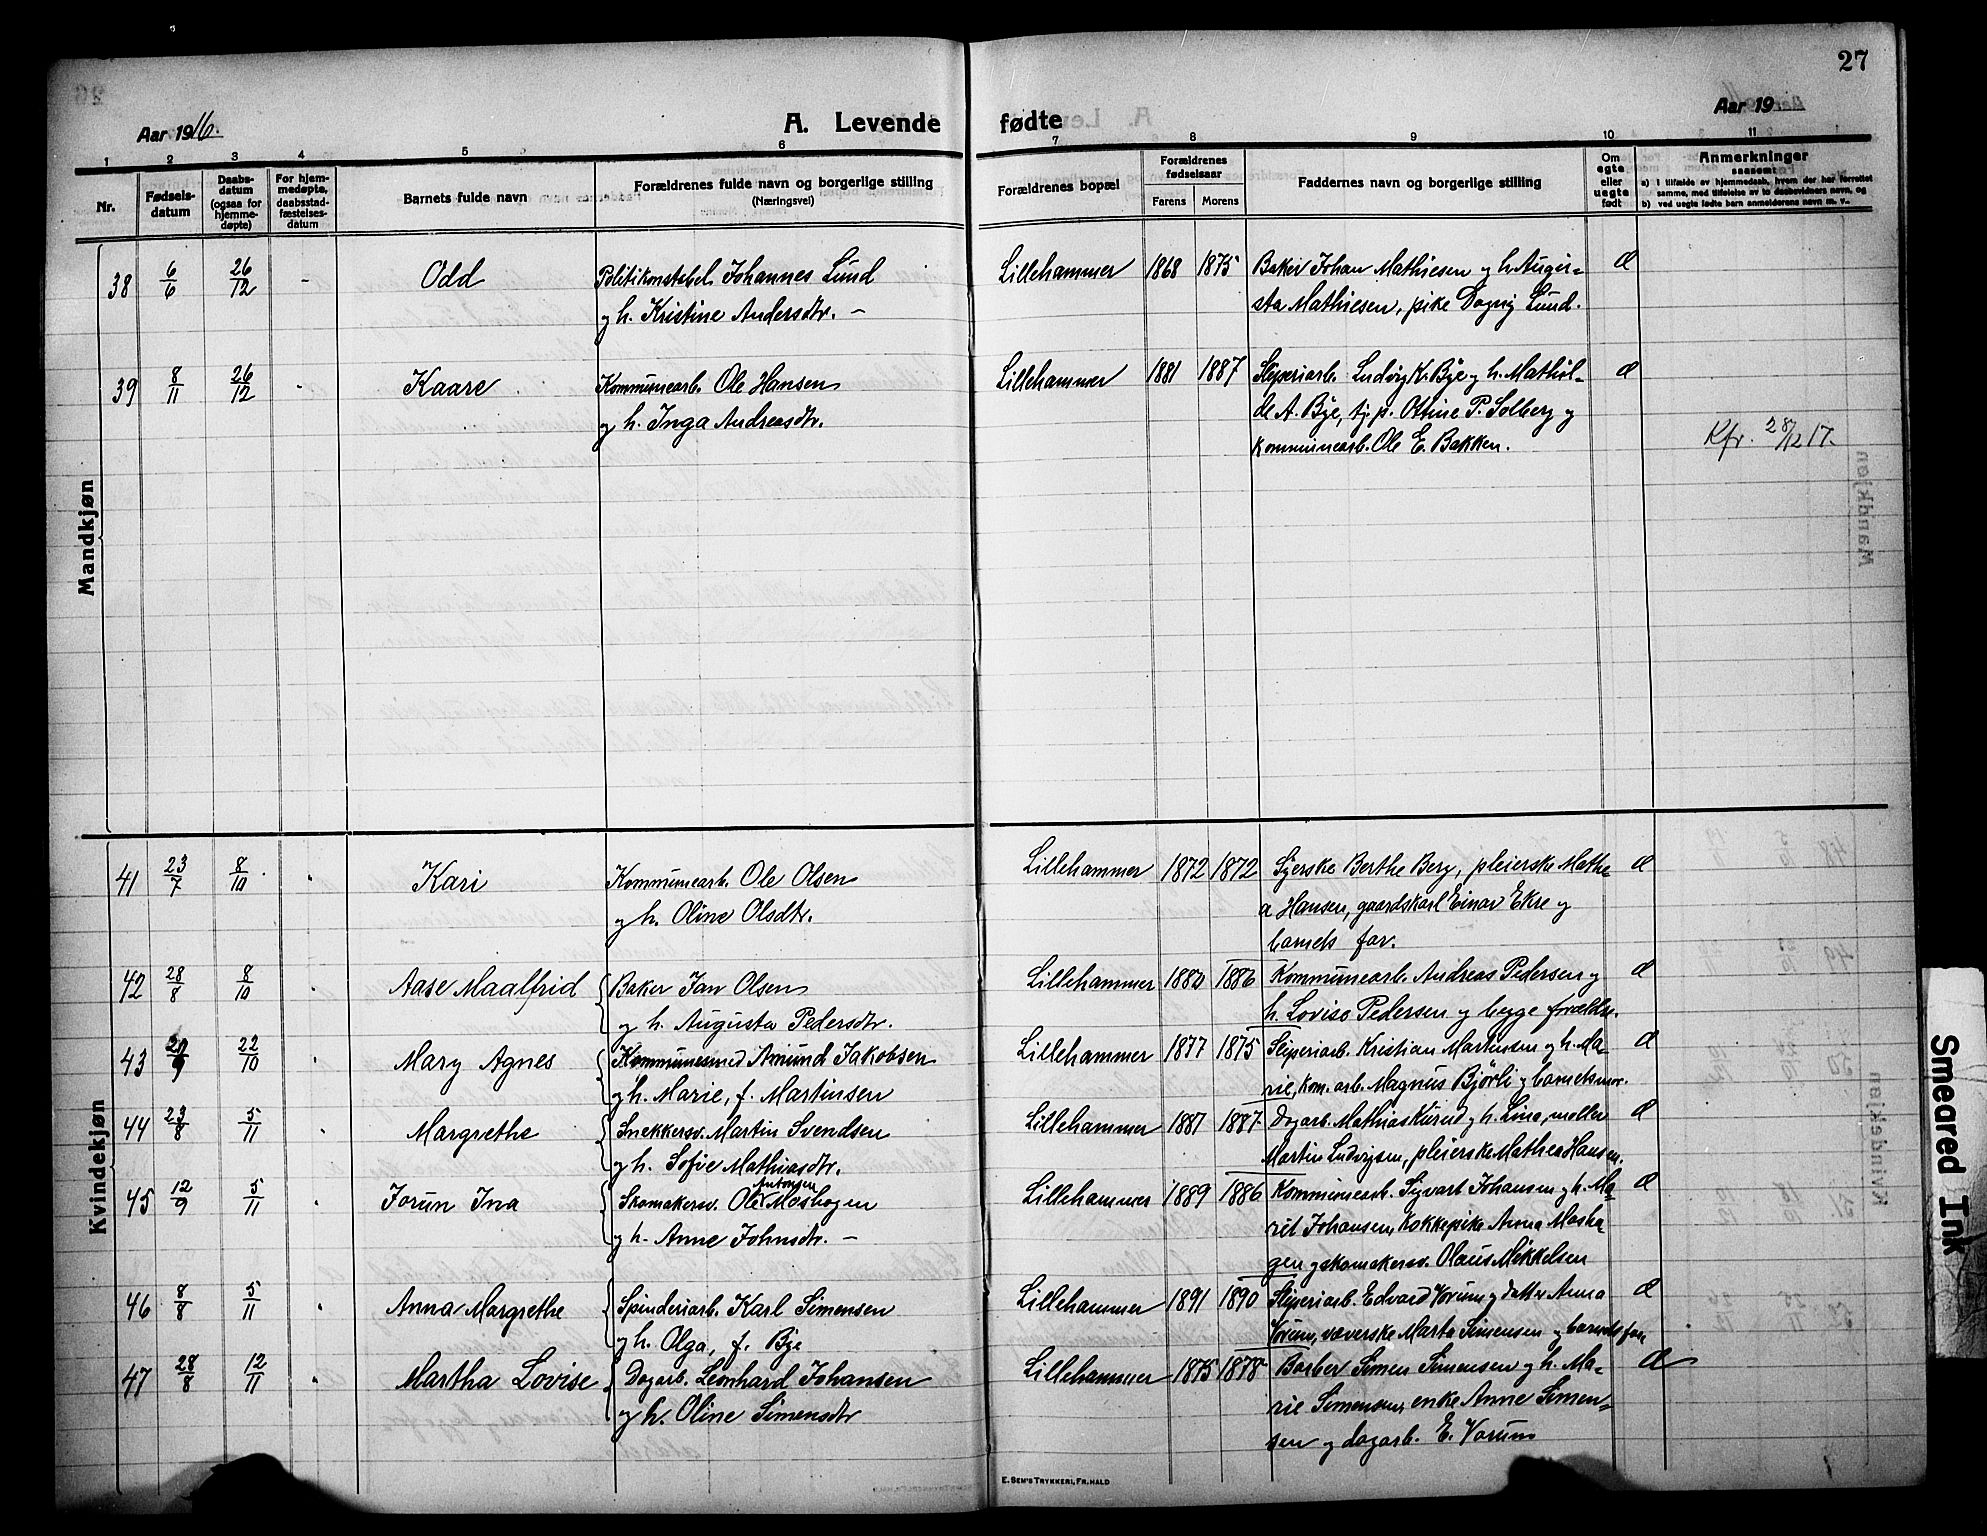 27
Aar 1916.
A. Levende fødte
Aar 19
1 2 3 4 5 6 7 8 9 10 11
Nr.
Fødsels-
datum
Daabs-
datum
(ogsaa for
hjemme-
døpte)
For hjem-
medøpte,
daabsstad-
fæstelses-
datum
Barnets fulde navn
Forældrenes fulde navn og borgerlige stilling
(Næringsvei)
Forældrenes bopæl
Forældrenes
fødselsaar
Farens Morens
Faddernes navn og borgerlig stilling
Om
egte
eller
uegte
født
Anmerkninger
saasom:
a) i tilfælde av hjemmedaab, hvem der har forrettet
samme, med tilføielse av to daabsvidners navn, og
b) ved uegte fødte barn anmelderens navn m. v.
Mandkjøn
38 6/6 26/12 - Odd Politikonstabel Johannes Lund Lillehammer 1868 1875 Baker Johan Mathiesen og h. Augu- æ
og h. Kristine Andersdtr. – sta Mathiesen, pike Dagny Lund.
39 8/11 26/12 - Kaare Kommunearb. Ole Hansen Lillehammer 1881 1887 Sliperiarb. Ludvig K. Bye og h. Mathil- æ
og h. Inga Andreasdtr. de A. Bye, tj.p. Ottine P. Solberg og
kommunearb. Ole E. Bakken. Kfr. 28/12 17.
Kvindekjøn
41 23/7 8/10 Kari Kommunearb. Ole Olsen Lillehammer 1872 1872 Syerske Berthe Berg, pleierske Mathe- æ
og h. Oline Olsdtr. a Hansen, gaardskarl Einar Ekre og
barnets far.
42 28/8 8/10 Aase Maalfrid Baker Jan Olsen Lillehammer 1886 Kommunearb. Andreas Pedersen og æ
og h. Augusta Pedersdtr. h. Lovise Pedersen og begge forældre.
43 22/10 Mary Agnes Kommunesmed Amund Jakobsen Lillehammer 1877 1875 Sliperiarb. Kristian Martinsen og h. Ma- æ
og h. Marie, f. Martinsen rie, kom. arb. Magnus Bjørli og barnets mor.
44 23/8 5/11 Margrethe Snekkersv. Martin Svendsen Lillehammer 1887 1887 Dagarb. Mathias Kurud og h. Lina, møller æ
og h. Sofie Mathiasdtr. Martin Ludvigsen, pleierske Mathea Hansen.
45 12/9 5/11 Jorun Ina Skomakersv. Ole Antonsen Moshagen Lillehammer 1889 1886 Kommunearb. Sigvart Johansen og h. Ma- æ
og h. Anne Johnsdtr. – rit Johansen, kokkepike Anna Mosha-
gen og skomakersv. Olaus Mikkelsen
46 8/8 5/11 Anna Margrethe Spinderiarb. Karl Simensen Lillehammer 1891 1890 Sliperiarb. Edvard Vorum og datter Anna æ
og h. Olga, f. Bye Vorum, væverske Marta Simensen og barnets far.
47 28/8 12/11 Martha Lovise Dagarb. Leonhard Johansen Lillehammer 1875 1878 Barber Simen Simensen og h. Ma- æ
og h. Oline Simensdtr rie Simensen, enke Anne Simen-
sen og dagarb. E. Vorum
E. Sem's Trykkeri, Fr.hald
Smeared Ink